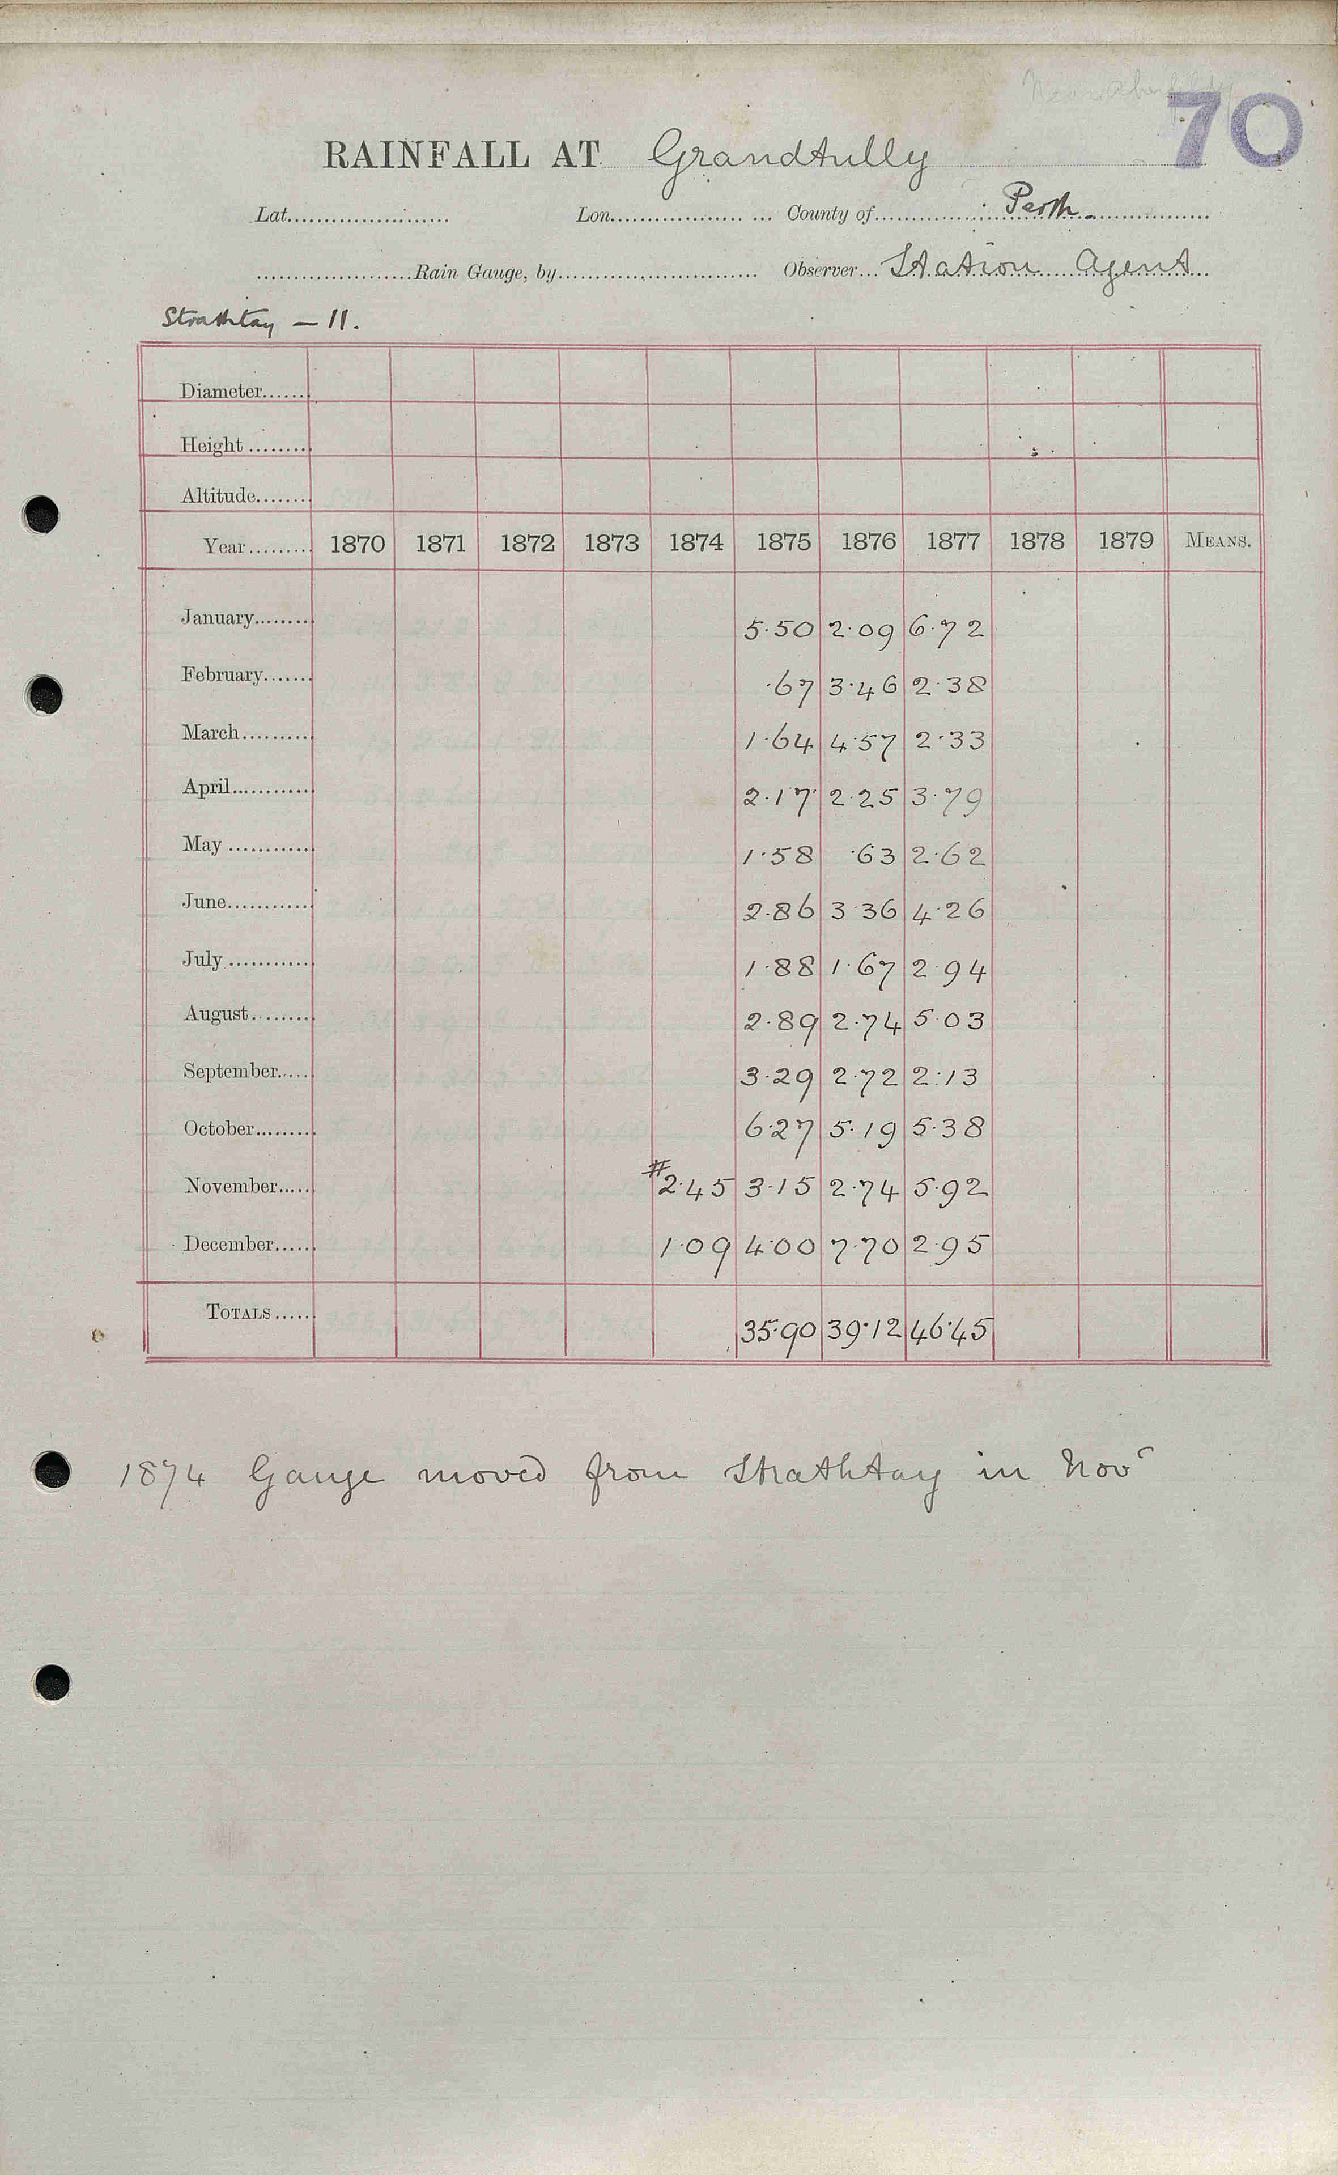 70
RAINFALL AT Grandtully
Lat. Lon. County of Perth
Rain Gauge, by Observer Station Agent
Strathtay - 11.
Diameter
Height
Altitude
Year 1870 1871 1872 1873 1874 1875 1876 1877 1878 1879 MEANS.
January 5.50 2.09 6.72
February .67 3.46 2.38
March 1.64 4.57 2.33
April 2.17 2.25 3.79
May 1.58 .63 2.62
June 2.86 3 36 4.26
July 1.88 1.67 2 94
August 2.89 2.74 5 03
September 3.29 2.72 2.13
October 6.27 5.19 5.38
November #2.45 3.15 2.74 5.92
December 1.09 4.00 7.70 2.95
TOTALS 35.90 39.12 46.45
1874 Gauge moved from Strathtay in Novr